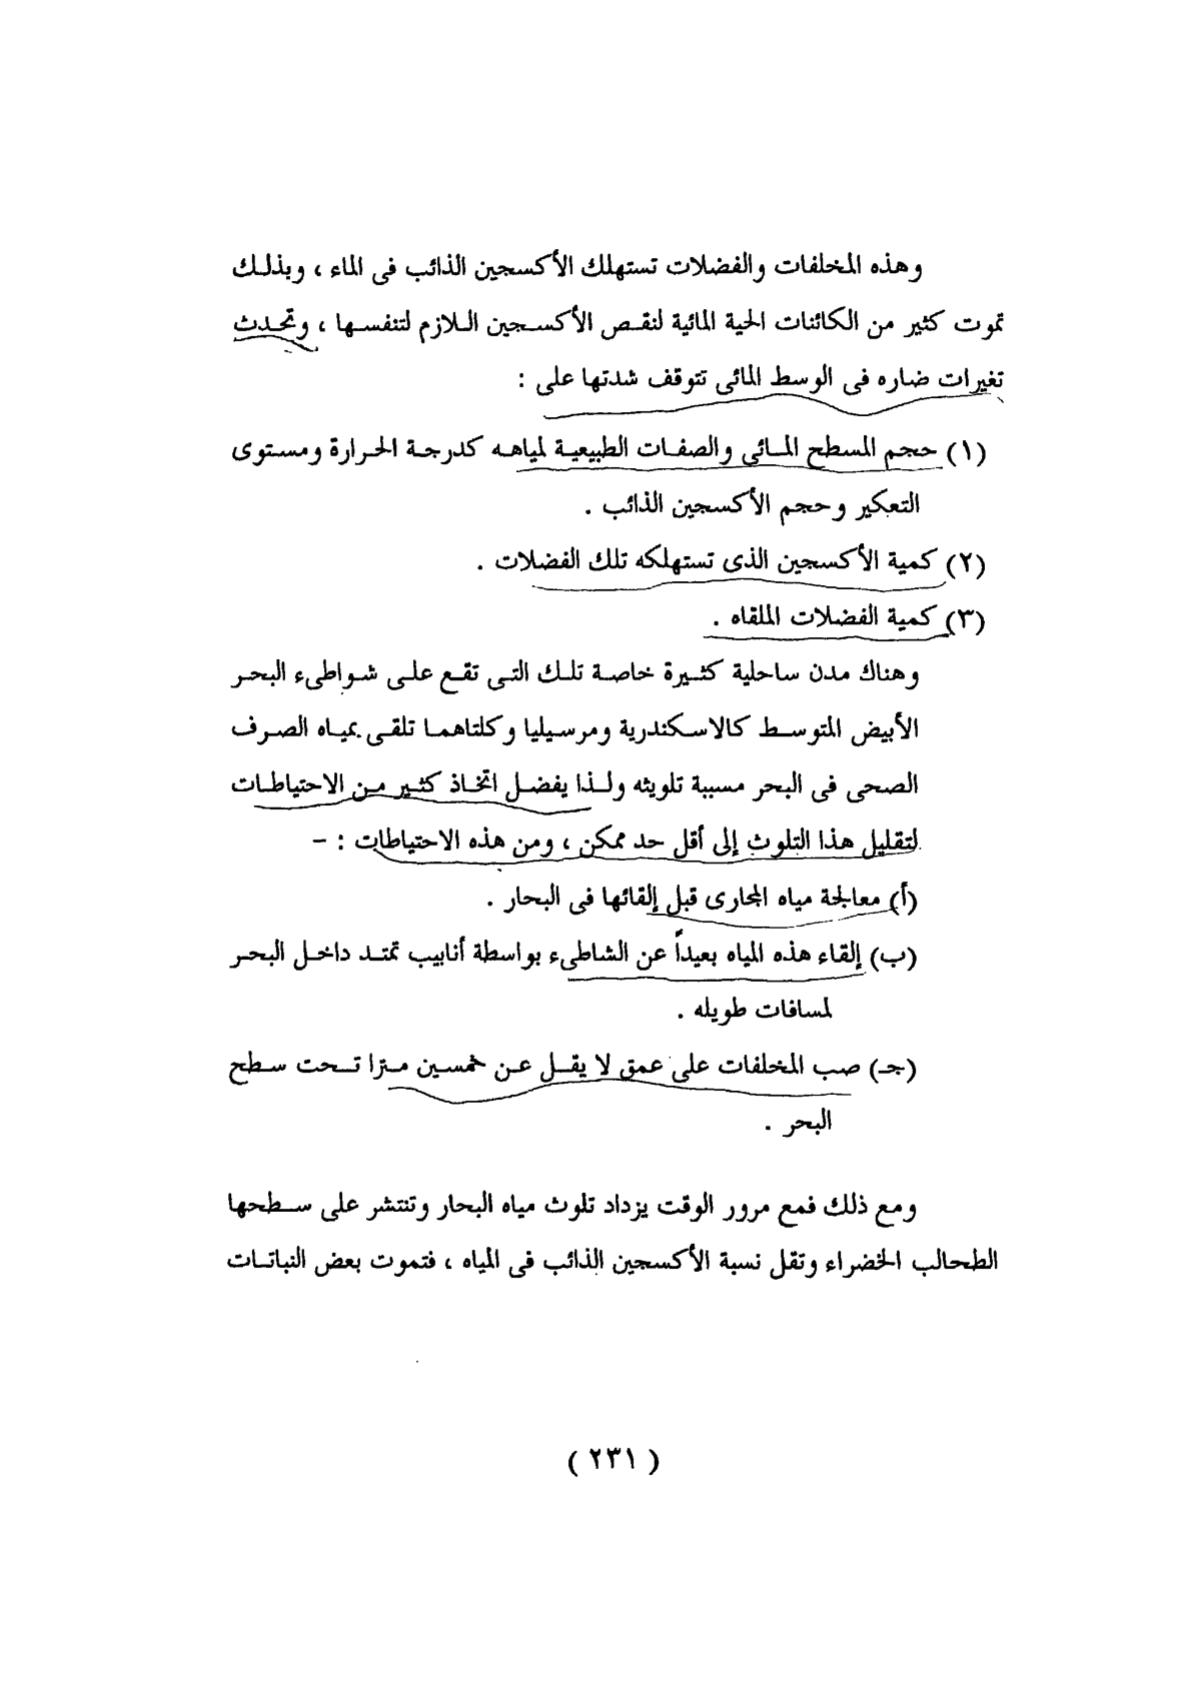 وهذه المخلفات والفضلات تستهلك الأكسجين الذائب فى الماء ، وبذلك
تموت كثير من الكائنات الحية المائية لنقص الأكسجين اللازم لتنفسها ، وتحدث
تغيرات ضاره فى الوسط المائى تتوقف شدتها على :
(١) حجم المسطح المائى والصفات الطبيعية لمياهه كدرجة الحرارة ومستوى
التعكير وحجم الأكسجين الذائب .
(٢) كمية الأكسجين الذى تستهلكه تلك الفضلات .
(٣) كمية الفضلات الملقاه .
وهناك مدن ساحلية كثيرة خاصة تلك التى تقع على شواطىء البحر
الأبيض المتوسط كالاسكندرية ومرسيليا وكلتاهما تلقى بمياه الصرف
الصحى فى البحر مسببة تلويثه ولذا يفضل اتخاذ كثير من الاحتياطات
لتقليل هذا التلوث إلى أقل حد ممكن ، ومن هذه الاحتياطات : –
(أ) معالجة مياه المجارى قبل إلقائها فى البحار .
(ب) إلقاء هذه المياه بعيداً عن الشاطىء بواسطة أنابيب تمتد داخل البحر
لمسافات طويله .
(جـ) صب المخلفات على عمق لا يقل عن خمسين مترا تحت سطح
البحر .
ومع ذلك فمع مرور الوقت يزداد تلوث مياه البحار وتنتشر على سطحها
الطحالب الخضراء وتقل نسبة الأكسجين الذائب فى المياه ، فتموت بعض النباتات
( ٢٣١ )